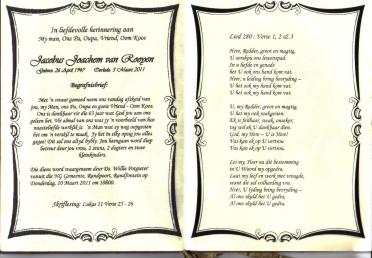 In liefdevolle herinnering aan
My man, ons Pa, Oupa, Vriend, Oom Koos
Jacobus Joachem van Rooyen
Gebore 26 April 1947 Oorlede 3 Maart 2011
Begrafnisbrief:
Met 'n swaar gemoed neem ons vandag afskeid van
jou, my Man, ons Pa, Oupa en goeie Vriend - Oom Koos.
Ons is dankbaar vir die 63 jaar wat God jou aan ons
geleen het. Vir almal van ons was jy 'n voorbeeld van hoe
'n Man wat sy oog opgegee
het om 'n verskil te maak. Jy het in elke opsig jou alles
gegee! Dit sal ons altyd bybly. Jou heengaan word diep
betreur deur jou vrou, 2 seuns, 2 dogters en twee
kleinkinders.
Die diens word waargeneem deur Ds. Willie Potgieter
vanuit die NG Gemeente, Randpoort, Randfontein op
Donderdag, 10 Maart 2011 om 10h00.
Skriflesing: Lukas 11 Verse 23 - 26
Lied 280 : Verse 1, 2 & 3
Heer, Redder, groot en magtig,
U verskyn ons lewenspad.
In u liefde en genade
het U ook my hand kom vat.
Heer, u leiding bring bevryding –
het U ook my hand kom vat,
het U ook my hand kom vat.
U, my Redder, groot en magtig,
U het my ook raakgesien.
Ek is feilbaar, swak, onseker,
tog wil ek U dankbaar dien.
God, my Heer – U is Heer!
Vas kan ek op U vertrou,
Vas kan ek op U vertrou.
Lei my, Heer na die bestemming
in U Woord my opgedra.
Laat my leef en werk met vreugde,
want die aal volharding vra.
Heer, U leiding bring bevryding –
Al ons skuld het U gedra,
Al ons skuld het U gedra.